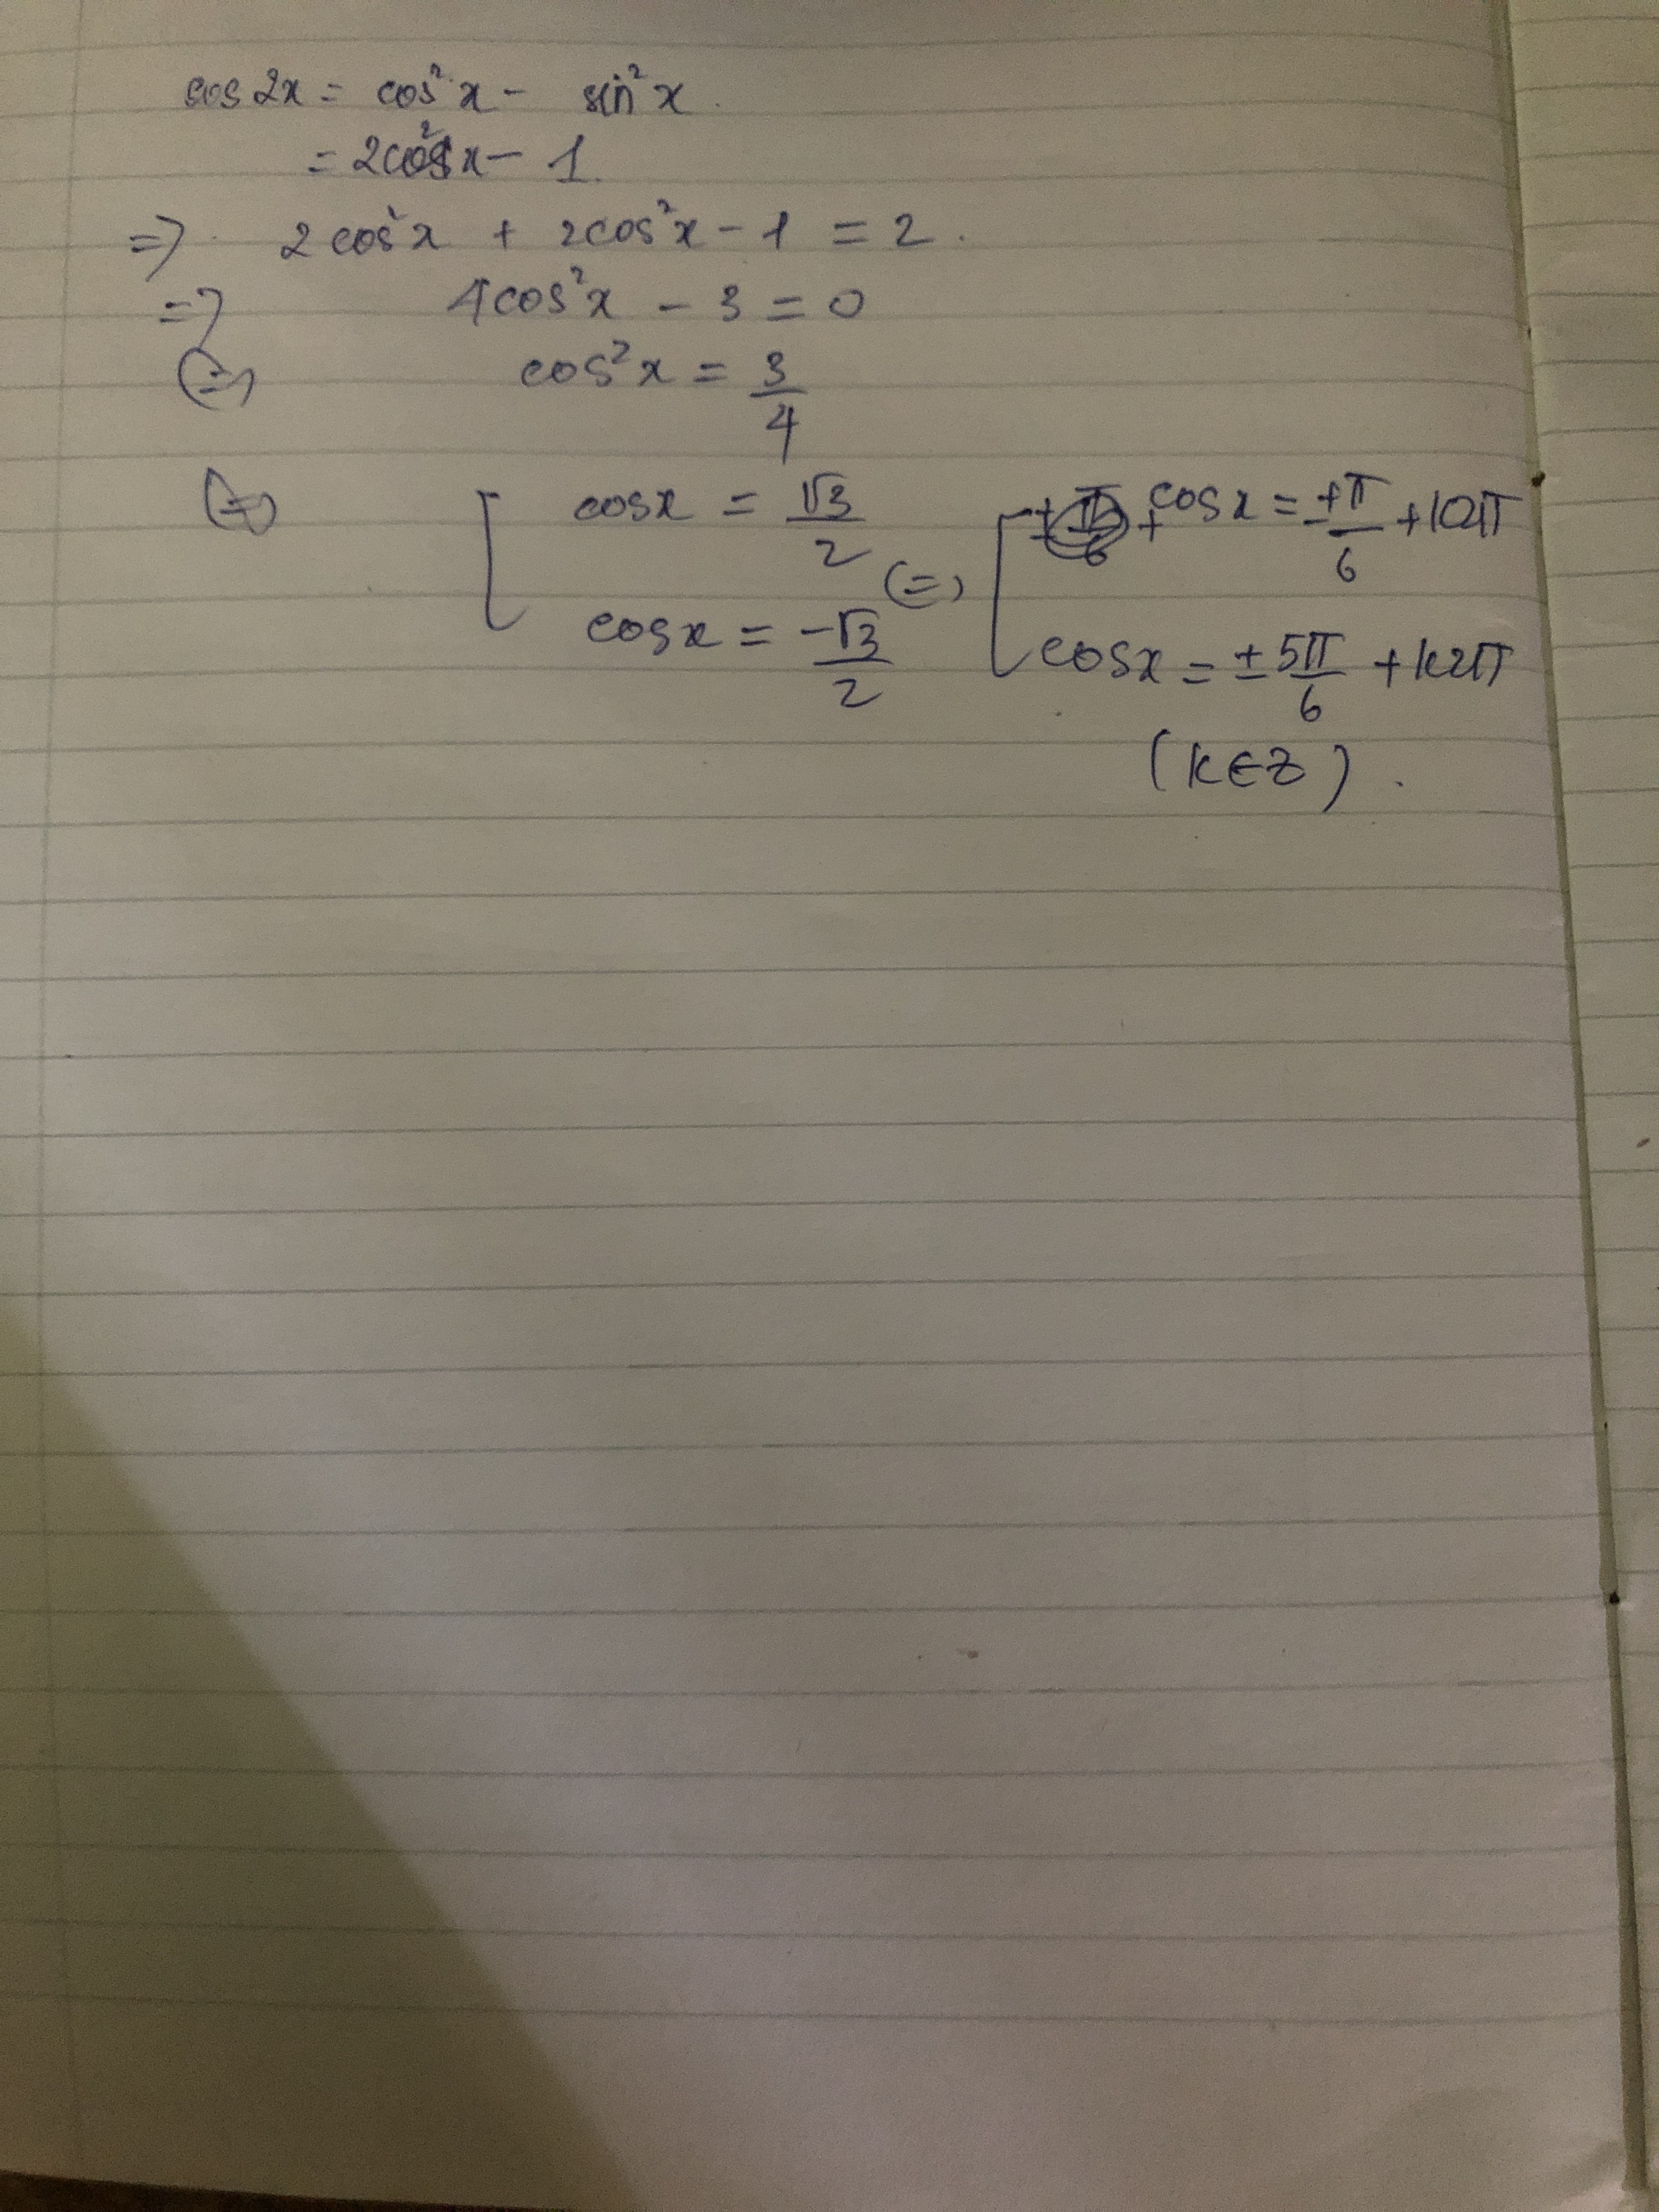 cos 2x = cos²x - sin²x.
= 2cos²x - 1.
=> 2cos²x + 2cos²x - 1 = 2.
=> 4cos²x - 3 = 0
(=) cos²x = 3/4
(=) [ cosx = √3/2 (=) [ cosx = ±π/6 + k2π
cosx = -√3/2 cosx = ±5π/6 + k2π
(k∈Z).